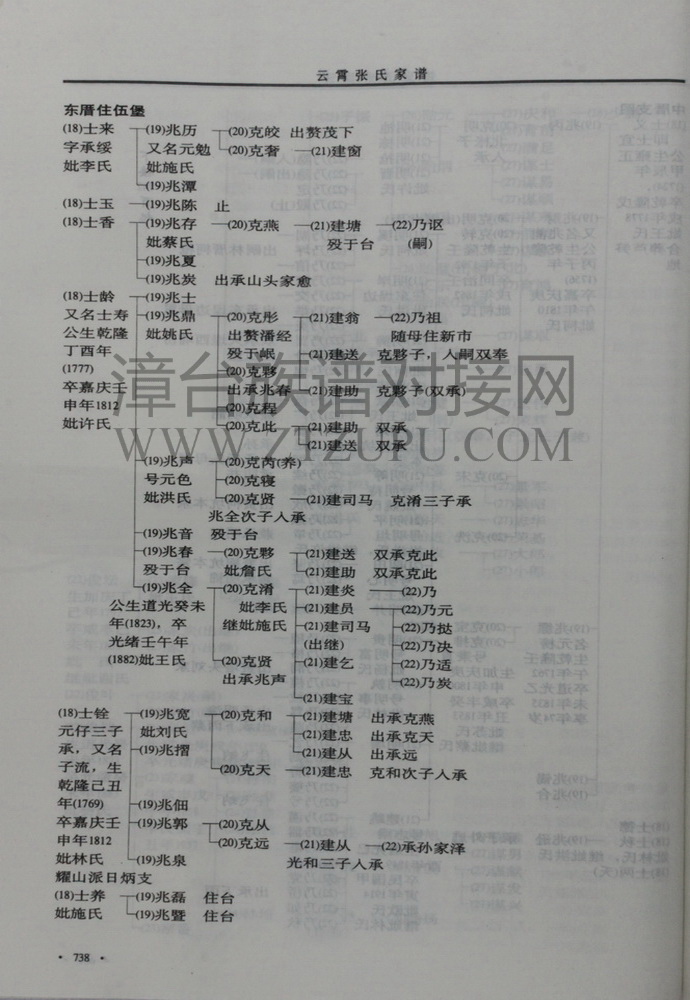 云霄张氏家谱
东厝住伍堡
(18)士来 (19)兆历 (20)克皎 出赘茂下
字承绥 又名元勉 (20)克奢 (21)建窗
妣李氏 妣施氏
(19)兆潭
(18)士玉 (19)兆陈 止
(18)士香 (19)兆存 (20)克燕 (21)建塘 (22)乃讴
妣蔡氏 殁于台 (嗣)
(19)兆夏
(19)兆炭 出承山头家愈
(18)士龄 (19)兆士
又名士寿 (19)兆鼎 (20)克彤 (21)建翁 (22)乃祖
公生乾隆 妣姚氏 出赘潘经 随母住新市
丁酉年 殁于岷 (21)建送 克夥子,入嗣双奉
(1777) (20)克夥
卒嘉庆壬 出承兆春 (21)建助 克夥子(双承)
申年1812 (20)克程
妣许氏 (20)克此 (21)建助 双承
(21)建送 双承
(19)兆声 (20)克芮(养)
号元色 (20)克寝
妣洪氏 (20)克贤 (21)建司马 克淆三子承
兆全次子入承
(19)兆音 殁于台
(19)兆春 (20)克夥 (21)建送 双承克此
殁于台 妣詹氏 (21)建助 双承克此
(19)兆全 (20)克淆 (21)建炎 (22)乃
公生道光癸未 妣李氏 (21)建员 (22)乃元
年(1823),卒 继妣施氏 (21)建司马 (22)乃挞
光绪壬午年 (出继) (22)乃决
(1882)妣王氏 (20)克贤 (21)建乞 (22)乃适
出承兆声 (22)乃炭
(21)建宝
(18)士铨 (19)兆宽 (20)克和 (21)建塘 出承克燕
元仔三子 妣刘氏 (21)建忠 出承克天
承,又名 (19)兆摺 (21)建从 出承远
子流,生 (20)克天 (21)建忠 克和次子入承
乾隆己丑
年(1769) (19)兆佃
卒嘉庆壬 (19)兆郭 (20)克从
申年1812 (20)克远 (21)建从 (22)承孙家泽
妣林氏 (19)兆泉 光和三子入承
耀山派日炳支
(18)士养 (19)兆磊 住台
妣施氏 (19)兆暨 住台
· 738 ·
漳台族谱对接网
WWW.ZTZUPU.COM